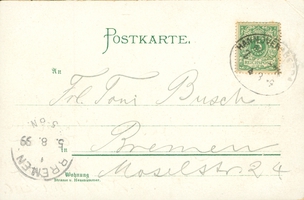 POSTKARTE.
HANNOVER
An
Frl. Toni Busch
5. 8. 99
BREMEN
1
in
Bremen
Wohnung
Moselstr. 24